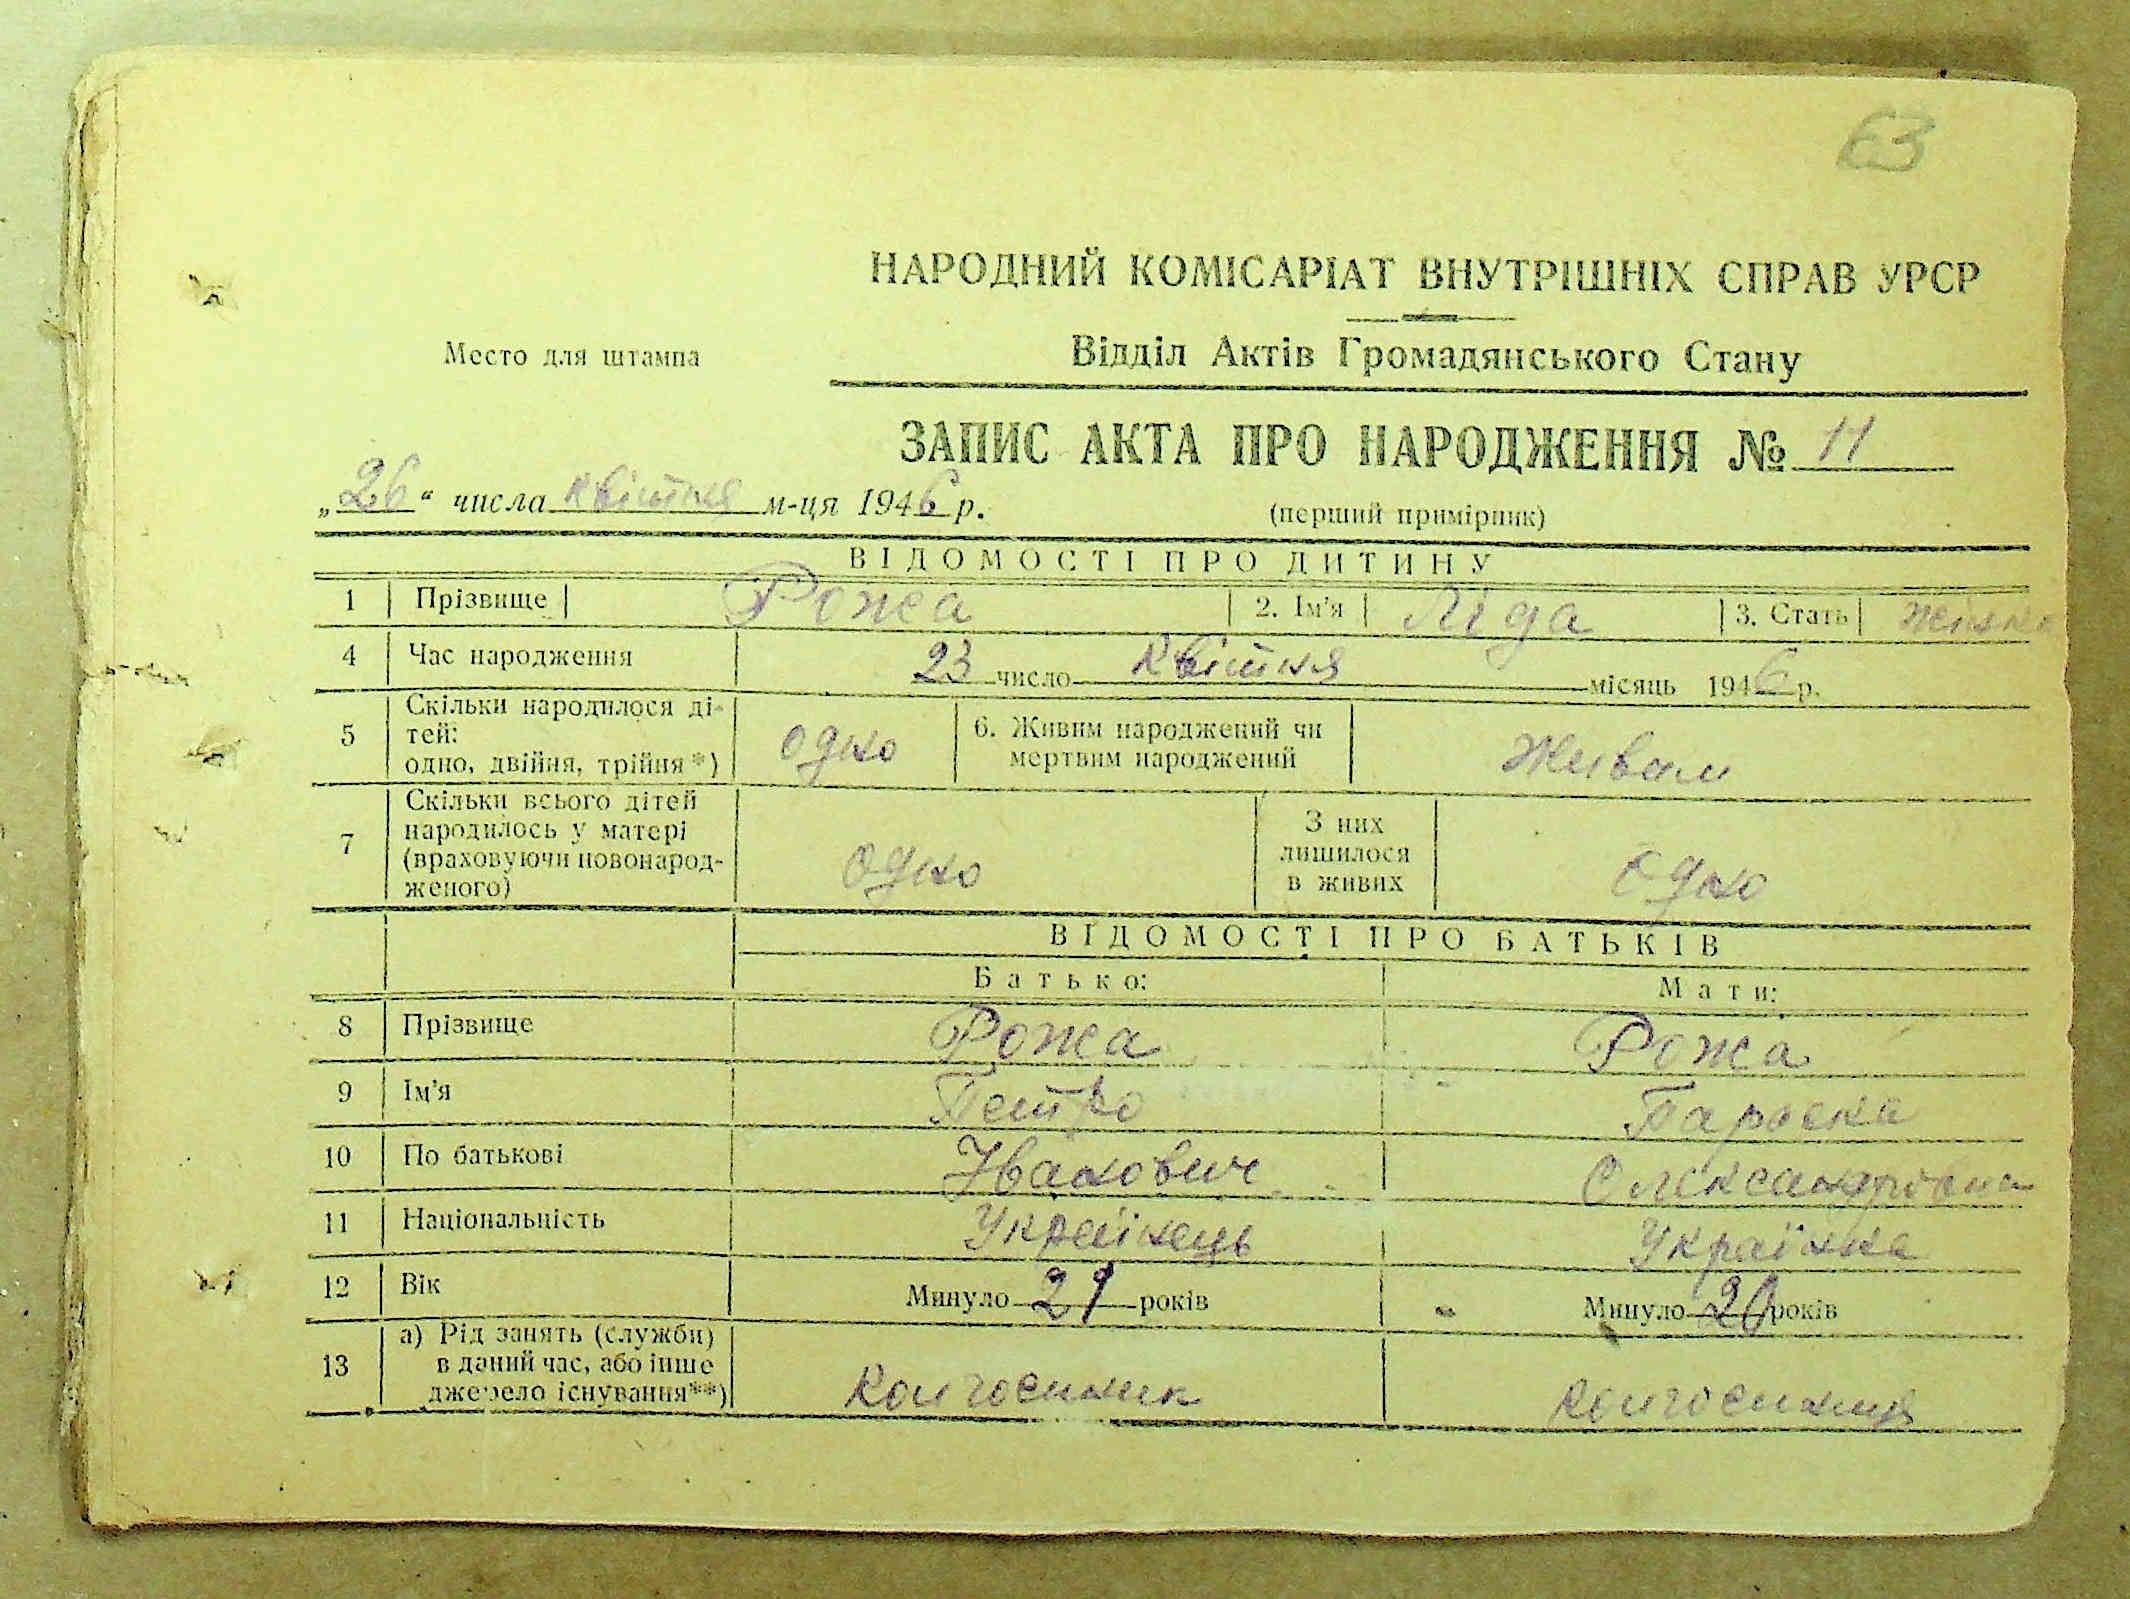 63
НАРОДНИЙ КОМІСАРІАТ ВНУТРІШНІХ СПРАВ УРСР
Место для штампа
Відділ Актів Громадянського Стану
ЗАПИС АКТА ПРО НАРОДЖЕННЯ № 11
„26“ числа квітня м-ця 1946 р.
(перший примірник)
ВІДОМОСТІ ПРО ДИТИНУ
1 Прізвище Рожа 2. Ім'я Ліда 3. Стать
4 Час народження 23 число квітня місяць 1946 р.
5 Скільки народилося ді-
тей:
одно, двійня, трійня*) одно
6. Живим народжений чи
мертвим народжений Живим
7 Скільки всього дітей
народилось у матері
(враховуючи новонарод-
женого) одно
З них
лишилося
в живих одно
ВІДОМОСТІ ПРО БАТЬКІВ
Батько: Мати:
8 Прізвище Рожа Рожа
9 Ім'я Петро Параска
10 По батькові Іванович Олександровна
11 Національність Українець Українка
12 Вік Минуло 21 років Минуло 20 років
13 а) Рід занять (служби)
в даний час, або інше
джерело існування**) Колгоспник колгоспниця